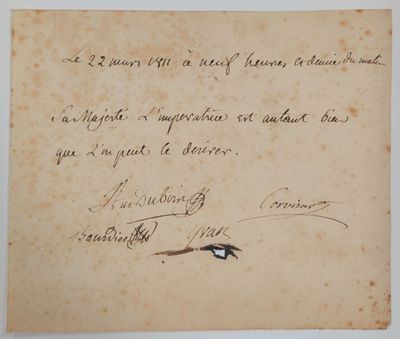 Le 22 mars 1811 à neuf heures et demie du matin
Sa Majesté L'imperatrice est autant bien
que L'on peut le desirer.
Ant Dubois Corvisart
Bourdier Yvan